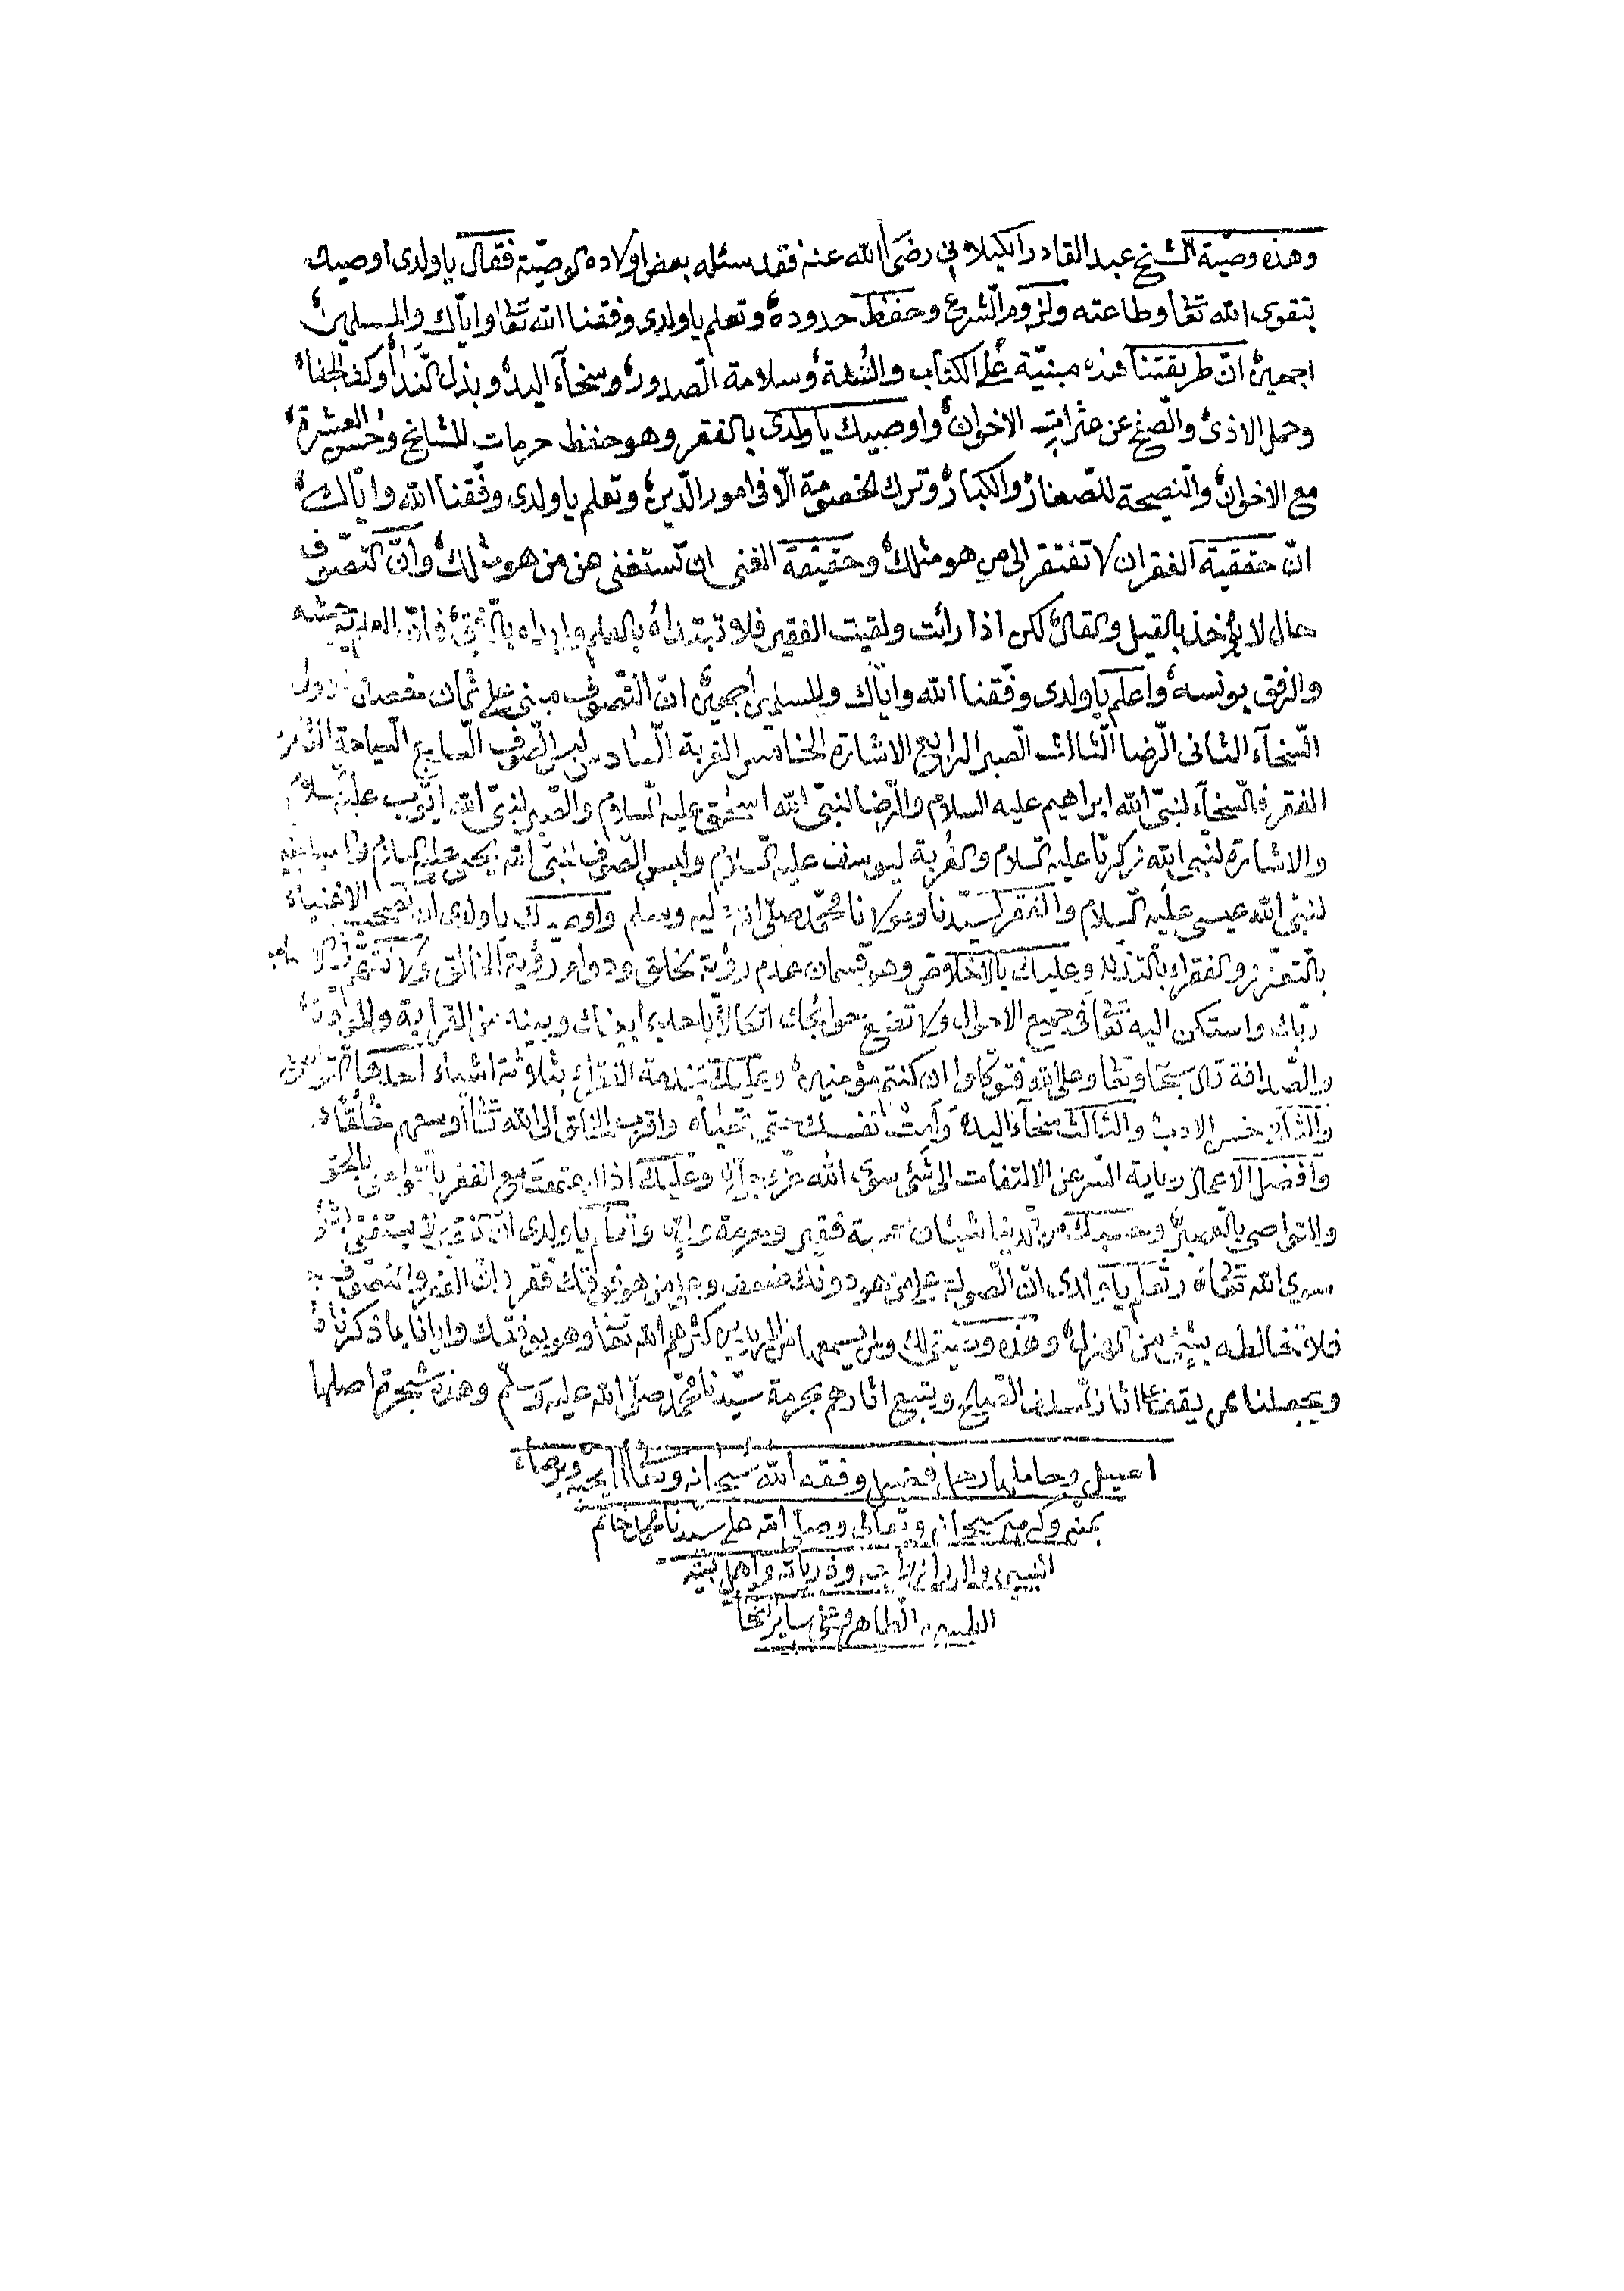 وهذه وصيّة الشيخ عبد القادر الكيلاني رضي الله عنه فقد سئله بعض اولاده الوصيّة فقال يا ولدى اوصيك
بتقوى الله تعا وطاعته ولزوم الشرع وحفظ حدوده وتعلم يا ولدى وفقنا الله تعا واياك والمسلمين
اجمعين انّ طريقتنا هذه مبنيّة على الكتاب والسّنة وسلامة الصدور وسخآء اليد وبذل الندا وكف الجفا
وحمل الاذى والصفح عن عثرات الاخوان واوصيك يا ولدى بالفقر وهو حفظ حرمات المشايخ وحسن العشرة
مع الاخوان والنصيحة للصغار والكبار وترك الخصومة الّا فى امور الدّين وتعلم يا ولدى وفّقنا الله وايّاك
انّ حققية الفقر ان لا تفتقر الى من هو مثلك وحقيقة الغنى ان تستغنى عن من هو مثلك وانّ التصوّف
حال لا يؤخذ بالقيل والقال لكن اذا رأت ولقيت الفقير فلا تبتداه بالعلم وابداه بالرّفق فانّ العلم يوحشه
والرفق يونسه واعلم يا ولدى وفّقنا الله واياك والمسلمين اجمعين انّ التصوف مبنى على ثمان خصال الاول
السّخآء الثانى الرّضا الثالث الصّبر الرابع الاشارة الخامس الغربة السّادس لبس الصّوف السابع السياحة الثامن
الفقر فالسّخآء لنبىّ الله ابراهيم عليه السلام والرّضا لنبىّ الله اسحٰق عليه السّلام والصّبر لنبىّ الله ايّوب عليه السلام
والاشارة لنبى الله زكريّا عليه السلام والغربة ليوسف عليه السّلام ولبس الصّوف لنبىّ الله يحيى عليه السلام والسياحة
لنبىّ الله عيسى عليه السلام والفقر لسيّدنا ومولانا محمّد صلّى الله عليه وسلم واوصيك يا ولدى ان تصحب الاغنياء
بالتعزّز والفقراء بالتذلل وعليك بالاخلاص وهو قسمان عدم رؤية الخلق ودوام رؤية الخالق ولا تتهم
ربّك واستكن اليه تعا فى جميع الاحوال ولا تضيع حوايجك اتكالاً باحد لما بينك وبينه من القرابة والمودّة
والصّداقة قال سبحا وتعا وعلى الله فتوكلوا ان كنتم مؤمنين وعليك بخدمة الفقراء بثلاثة اشياء احدها التواضع
والثّانى حسن الادب والثالث سخآء اليد وأمت نفسك حتى تحياه واقرب الخلق الى الله تعا اوسعهم خلقًا
وافضل الاعمال رعاية السّر عن الالتفات الى شئ سوى الله عزّ وجلّ وعليك اذا اجتمعت مع الفقر بالتواصى بالحق
والتواصى بالصبر وحسبك من الدّنيا شيئان صحبة فقير وحرمة ولىّ واعلم يا ولدى انّ الفقير لا يستغنى بشئ
سوى الله تعا وتعلم يا ولدى انّ الصّولة على من هو دونك ضعف وعلى من هو فوقك فقر وانّ الفقر والتصوّف
فلا تخالطه بشئ من الهزل وهذه وصيتى لك ولمن يسمعها من المريدين كثرهم الله تعا وهو يوفقك وايانا بما ذكرناه
ويجعلنا ممن يقتفى اثار السلف الصالح ويتبع اثارهم بحرمة سيّدنا محمّد صلّى الله عليه وسلم وهذه شجرة اصلها
اصيل وحاملها رجل فضيل وفقه الله سبحانه وتعالى
بمنه وكرمه سبحانه وتعالى وصلى الله على سيدنا محمد خاتم
النبيين واله وازواجه وذرياته واهل بيته
الطيبين الطاهرين